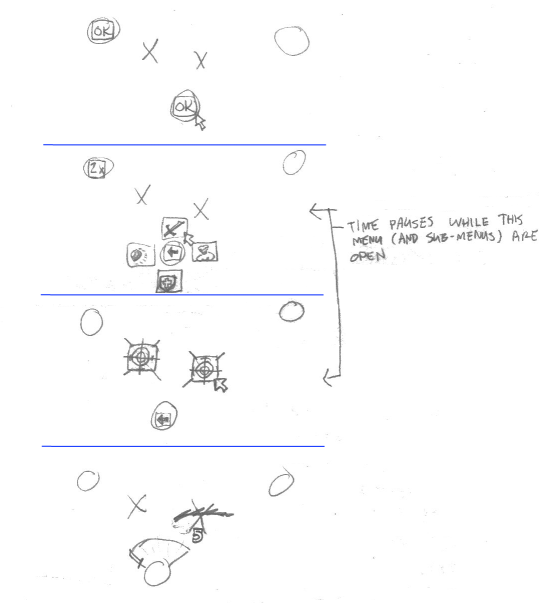 OK
OK
2x
TIME PAUSES WHILE THIS
MENU (AND SUB-MENUS) ARE
OPEN
5